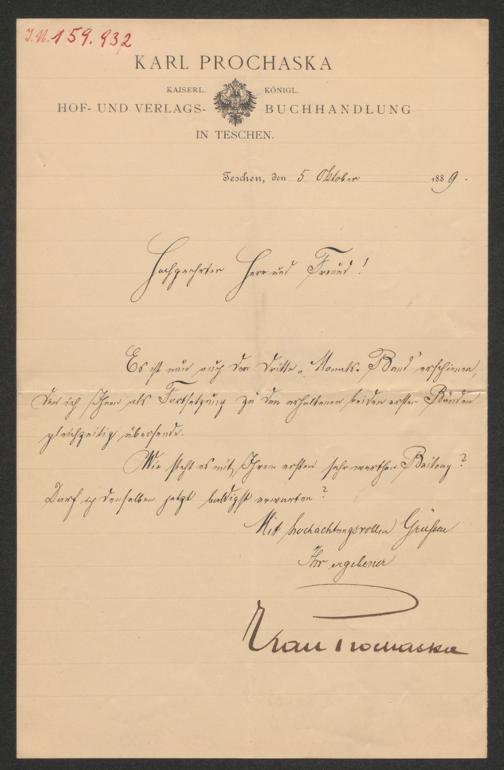 J.N. 159.932
KARL PROCHASKA
KAISERL. KÖNIGL.
HOF- UND VERLAGS- BUCHHANDLUNG
IN TESCHEN.
Teschen, den 5 Oktober 1889.
Hochgeehrter Herr und Freund!
Es ist nun auch der dritte „Monats-Band" erschienen,
den ich Ihnen als Fortsetzung zu den erhaltenen beiden ersten Bänden
gleichzeitig übersende.
Wie steht es mit Ihrem ersten sehr werthen Beitrag?
Darf ich denselben jetzt baldigst erwarten?
Mit hochachtungsvollen Grüßen
Ihr ergebener
Karl Prochaska